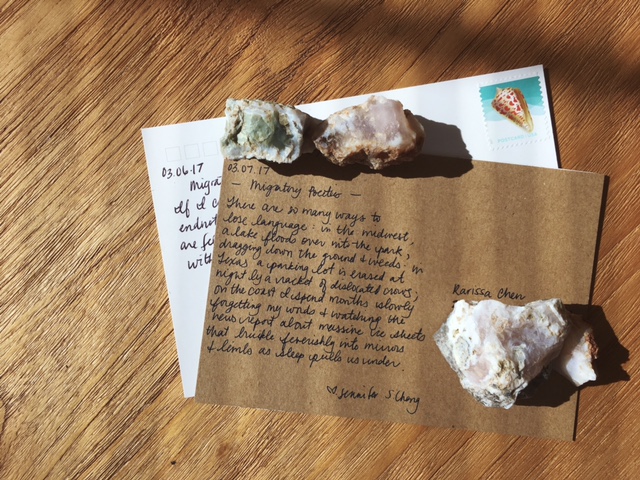 03.06.17
If I
are
with
03.07.17
— Migratory Poetics —
There are so many ways to
lose language: in the midwest,
a lake floods over into the park,
dragging down the ground & weeds. in
Texas a parking lot is erased at
night by a racket of dislocated crows;
on the coast I spend months slowly
forgetting my words & watching the
news report about massive ice sheets
that buckle feverishly into mirrors
& limbs as sleep pulls us under.
♡ Jennifer S Cheng
Rarissa Chen